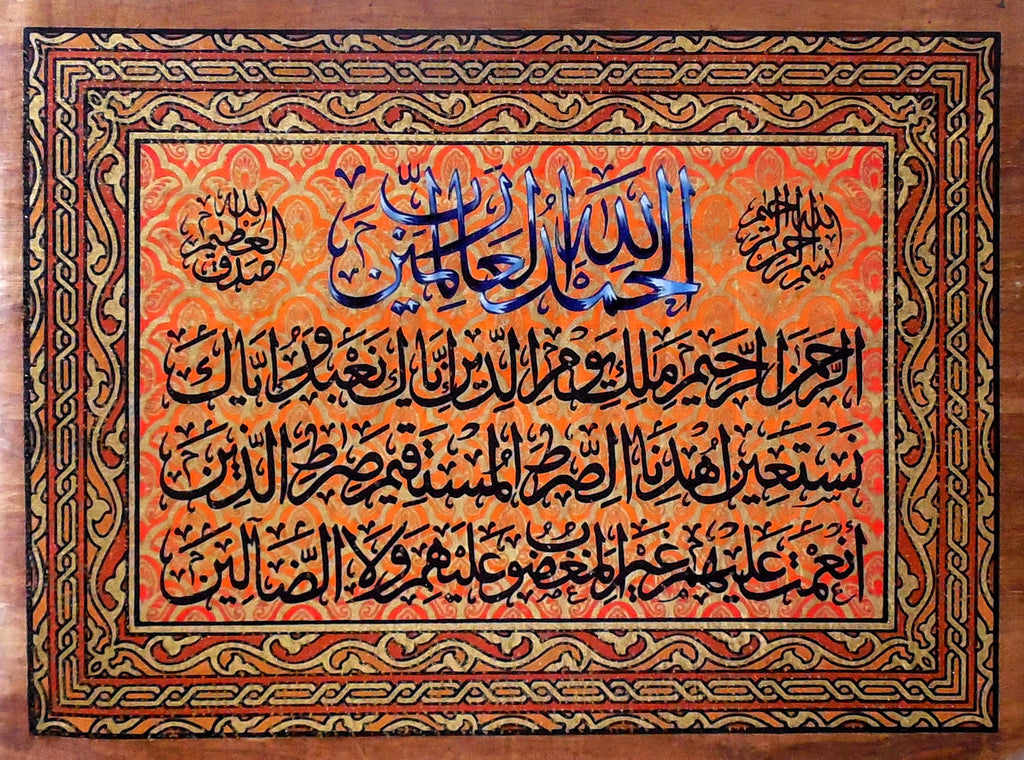 بسم الله الرحمن الرحيم
الحمد لله رب العالمين
صدق الله العظيم
الرحمن الرحيم ملك يوم الدين إياك نعبد وإياك
نستعين اهدنا الصرط المستقيم صرط الذين
أنعمت عليهم غير المغضوب عليهم ولا الضالين